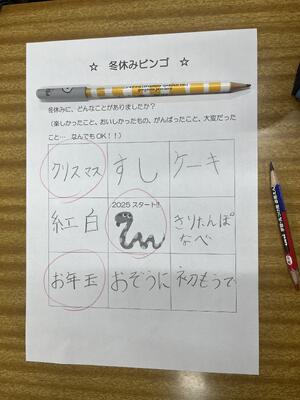 ☆ 冬休みビンゴ ☆
冬休みに、どんなことがありましたか？
（楽しかったこと、おいしかったもの、がんばったこと、大変だった
こと… なんでもOK！！）
クリスマス
すし
ケーキ
紅白
2025 スタート!!
きりたんぽ
なべ
お年玉
おぞうに
初もうで